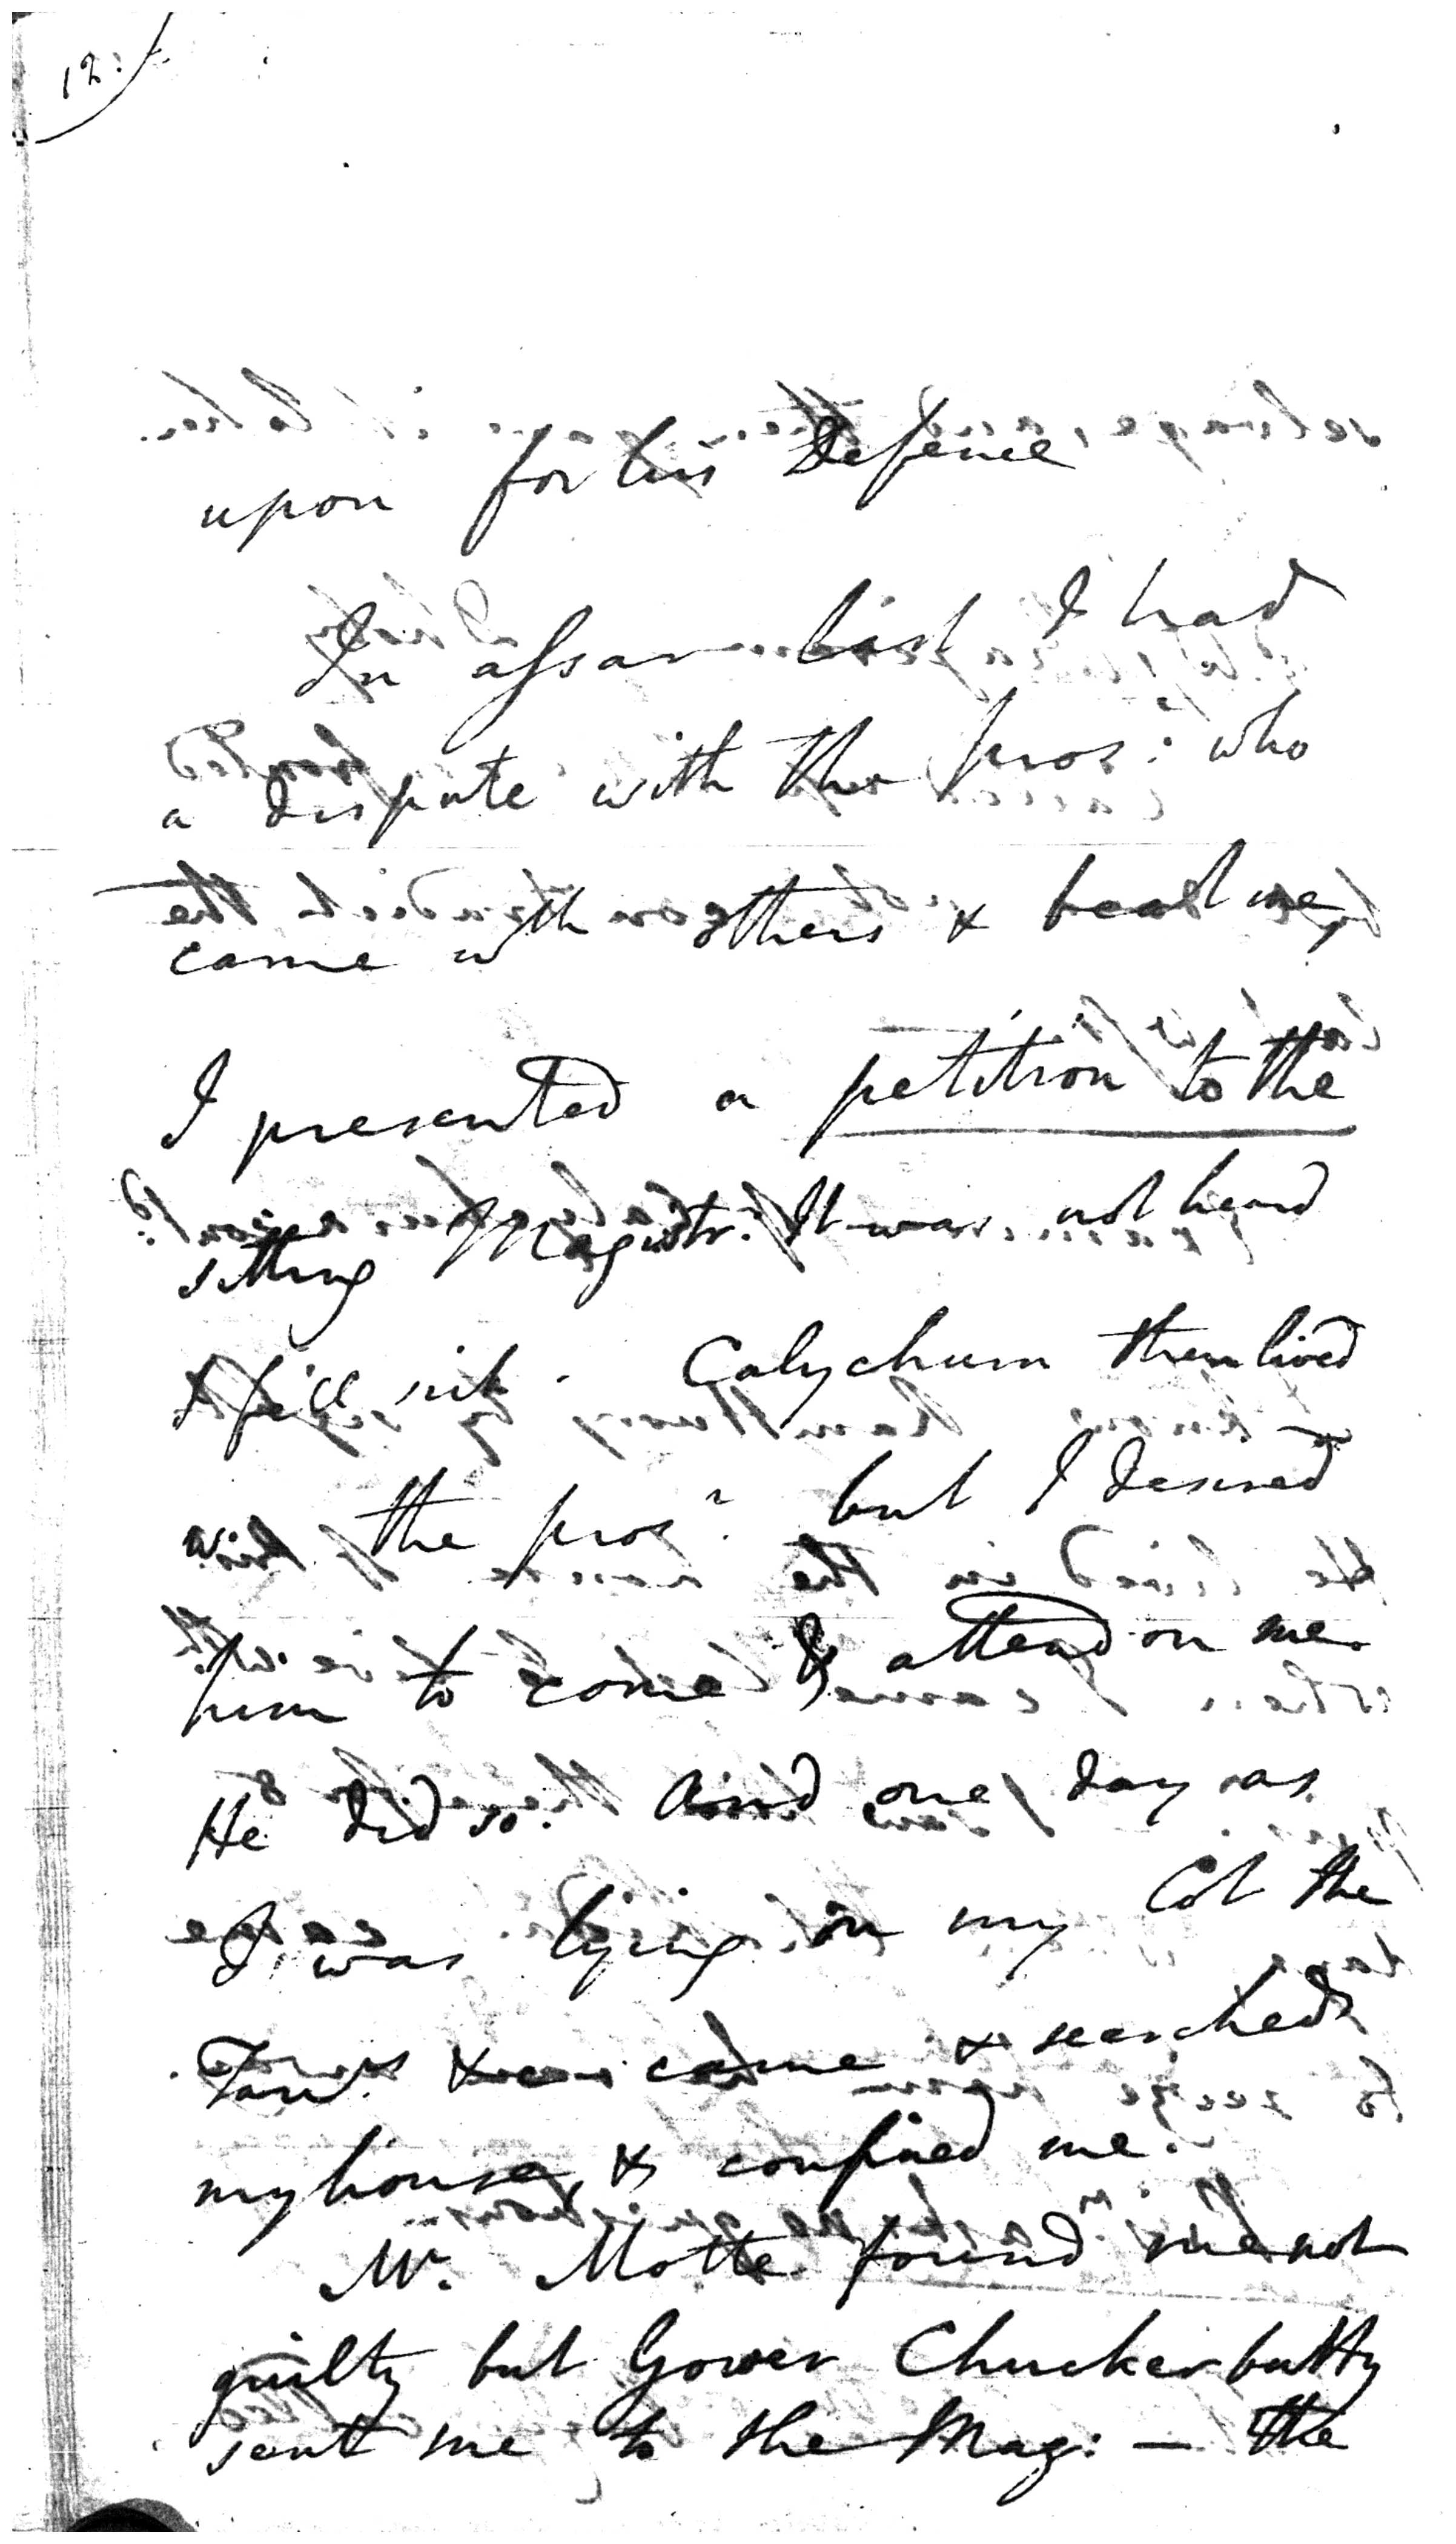 12.
upon for his Defence
In assar last I had
a dispute with the pros: who
came with others & beat me,
I presented a petition to the
sitting Magistr: It was not heard
I fell sick. Calychurn then lived
w. the pros r. but I desired
him to come & attend on me.
He did so. And one day as
I was lying on my Cot the
came & searched
my house, & confined me.
Mr. Motte found me not
guilty but Gower Chuckerbutty
sent me to the Mag: — the